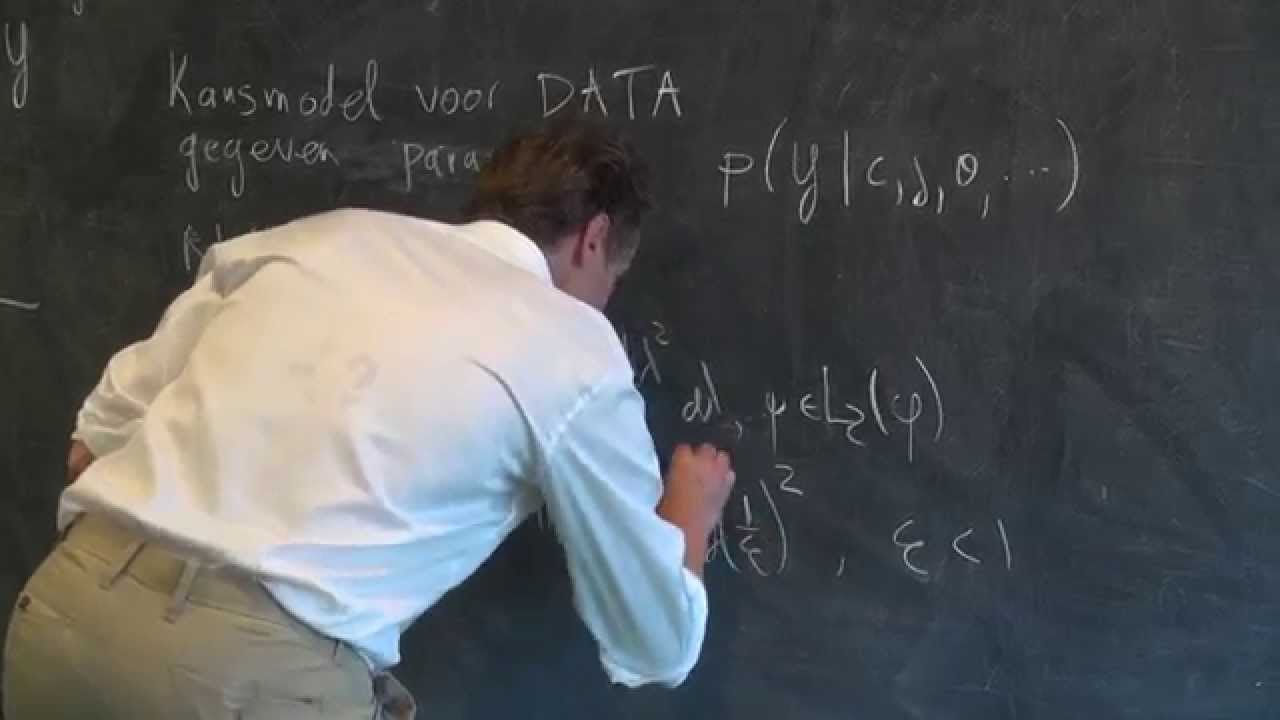 y
Kansmodel voor DATA
gegeven
p(y | c, d, θ, ...)
λ²
dλ, ψ ∈ L₂(φ)
(1/ε)² , ε < 1